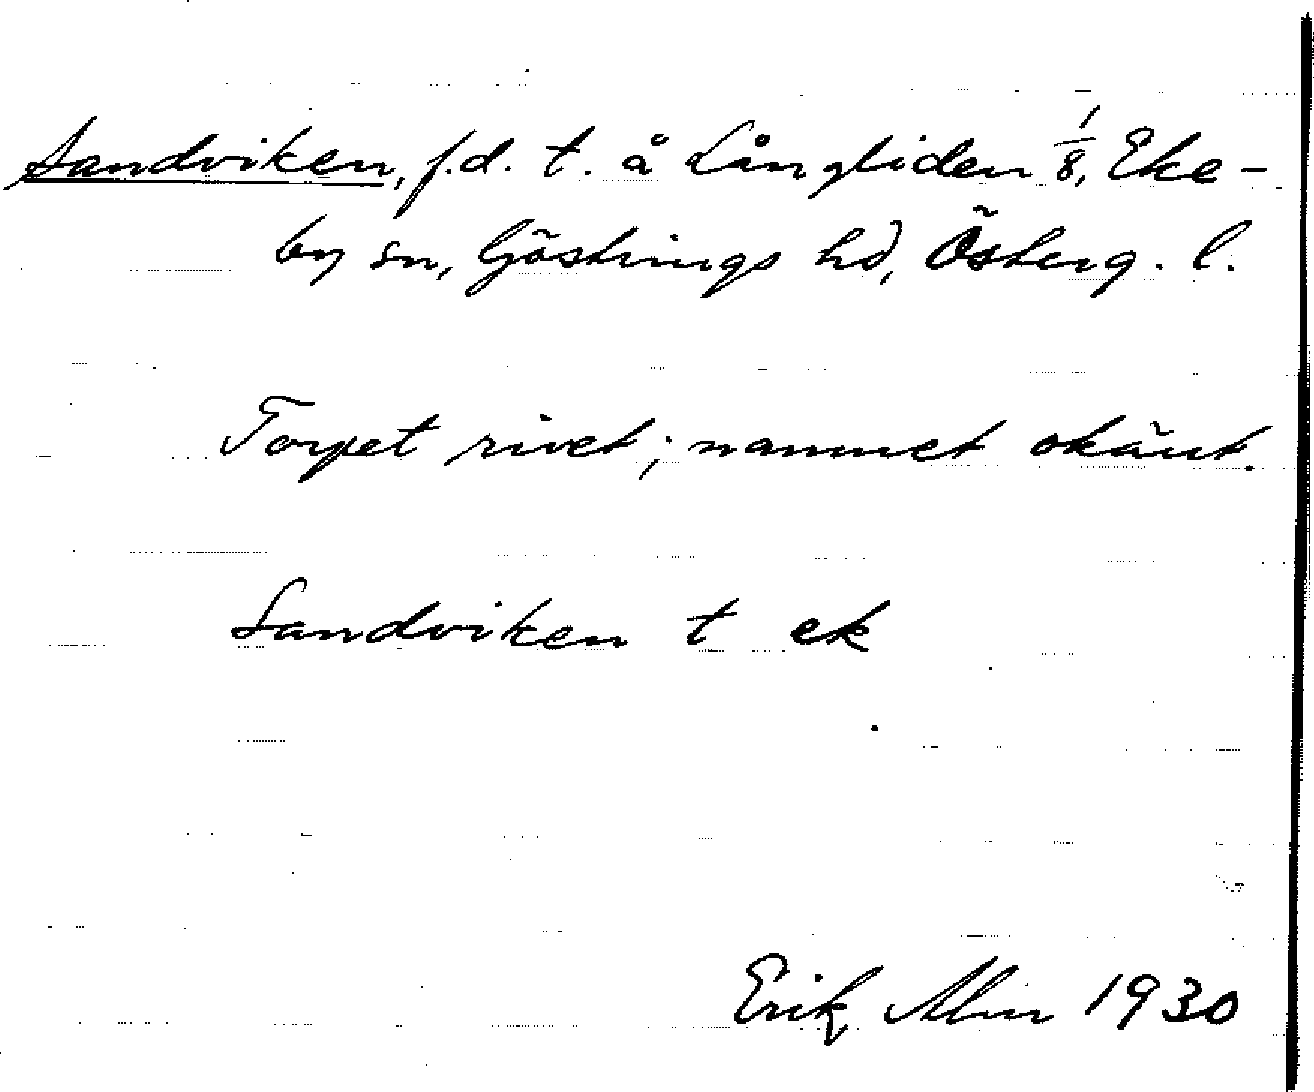 Sandviken, f.d. t. å Långliden 1/8, Eke-
by sn, Göstrings hd, Österg. l.
Torpet rivet; namnet okänt.
Sandviken t ek
Erik Abin 1930